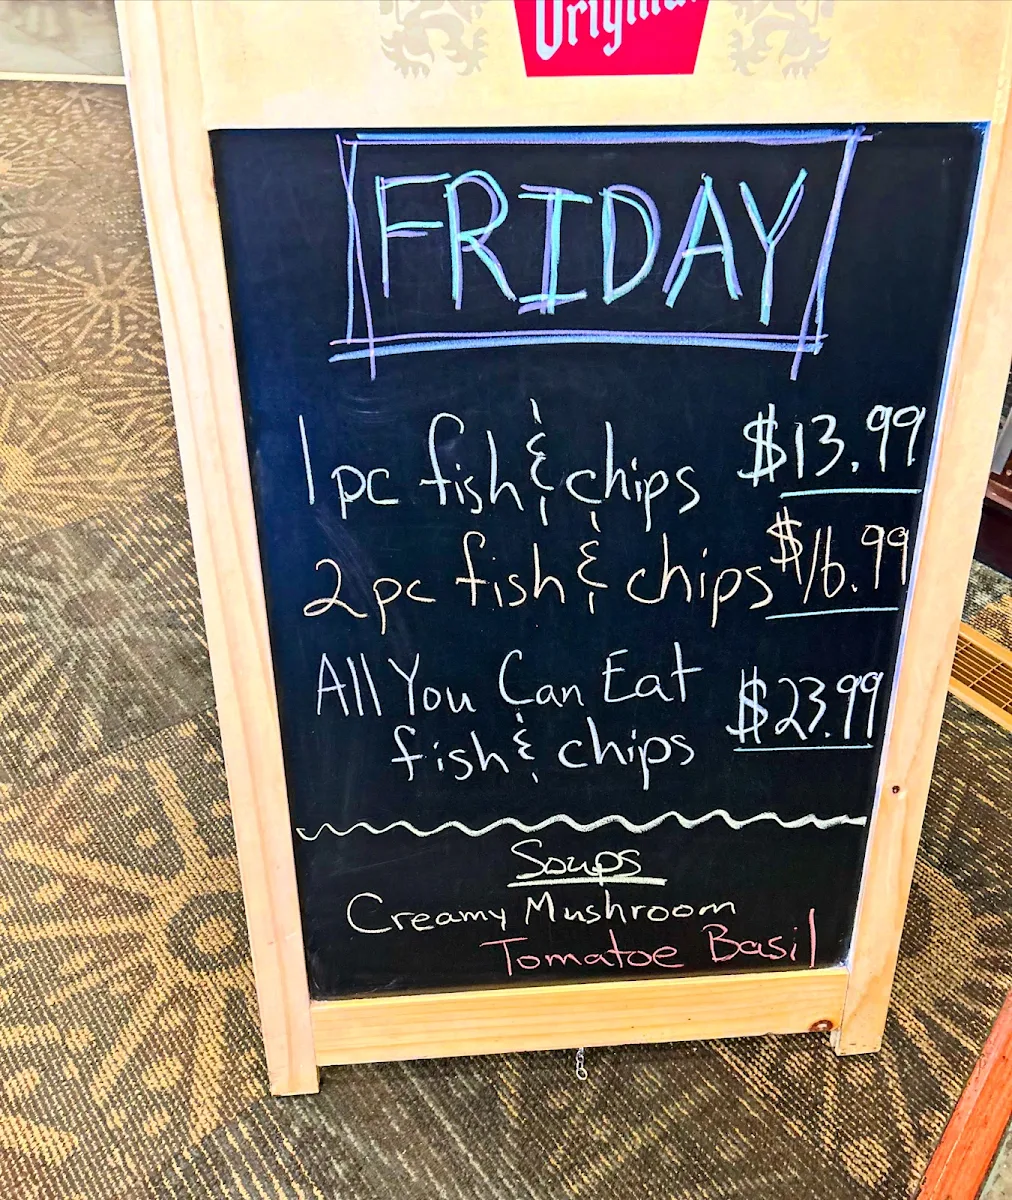 Original
FRIDAY
1pc fish & chips $13.99
2pc fish & chips $16.99
All You Can Eat
fish & chips $23.99
Soups
Creamy Mushroom
Tomatoe Basil